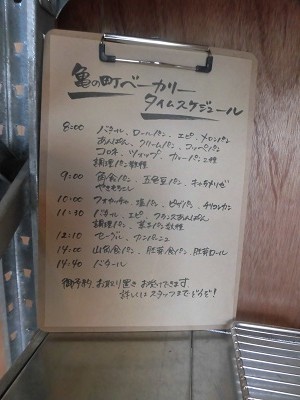 亀の町ベーカリー
タイムスケジュール
8:00 バタール、ロールパン、エピ、メロンパン
あんぱん、クリームパン、コッペパン
コロネ、ツオップ、カレーパン2種
調理パン数種
9:00 角食パン、五色豆パン
やきもろこし
10:00 フォカッチャ、塩パン、ピザパン、チリドッグ
11:30 バタール、エピ、フランスあんぱん
調理パン、菓子パン数種
12:10 ベーグル、カンパーニュ
14:00 山食パン、胚芽食パン、胚芽ロール
14:40 バタール
御予約、お取り置き お受けできます
詳しくはスタッフまでドウゾ!